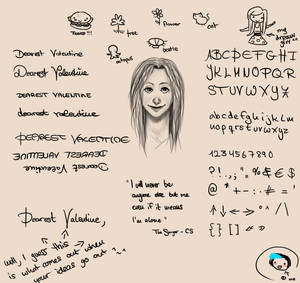 tree
flower
cat
octopus
beetle
my
girl
Dearest Valentine
Dearest Valentine
DEAREST VALENTINE
dearest valentine
DEAREST VALENTINE
DEAREST VALENTINE
Dearest Valentine
Dearest Valentine,
well, I guess this
is what comes out when
your ideas go out ^-^
"I will never be
anyone else but me
even if it means
I'm alone"
- CS
ABCDEFGHI
JKLMNOPQR
STUVWXYZ
abcdefghijklm
nopqrstuvwxyz
1234567890
?!.,;"%&€$
@*+-:#=!
{}[]
me